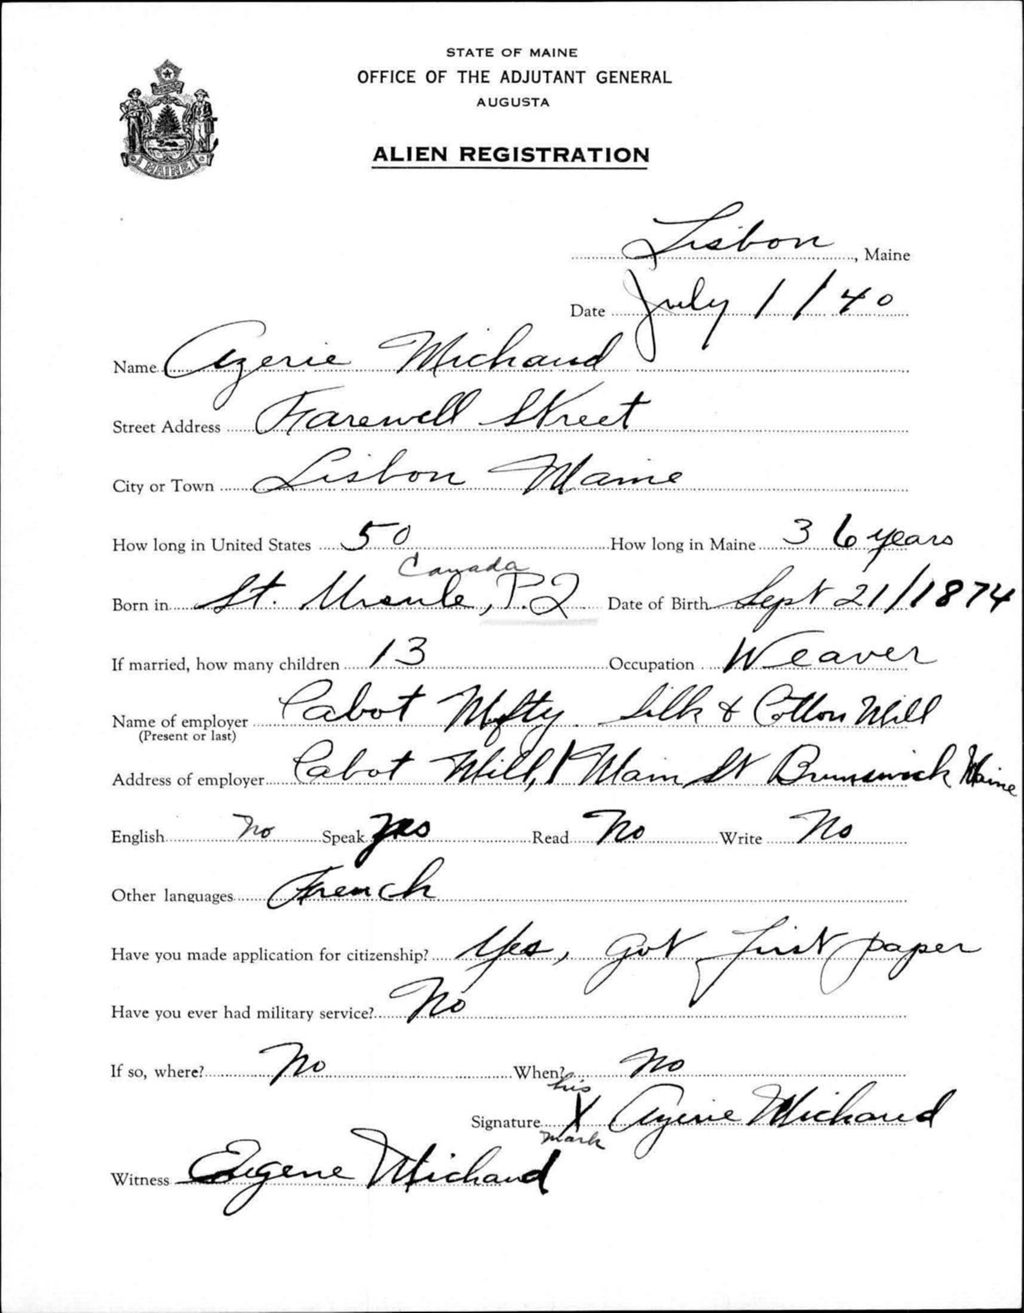 STATE OF MAINE
OFFICE OF THE ADJUTANT GENERAL
AUGUSTA
MAINE
ALIEN REGISTRATION
Lisbon, Maine
Date July 1/40
Name Azerie Michaud
Street Address Farewell Street
City or Town Lisbon Maine
How long in United States 50 How long in Maine 36 years
Canada
Born in St. Ursule, P.Q Date of Birth Sept 21/1874
If married, how many children 13 Occupation Weaver
Name of employer Cabot Mfty. Silk & Cotton Mill
(Present or last)
Address of employer Cabot Mill, 1 Main St Brunswick Maine
English No Speak yes Read No Write No
Other languages French
Have you made application for citizenship? Yes, got first paper
Have you ever had military service? No
If so, where? No When? No
his
Signature X Azerie Michaud
mark
Witness Eugene Michaud